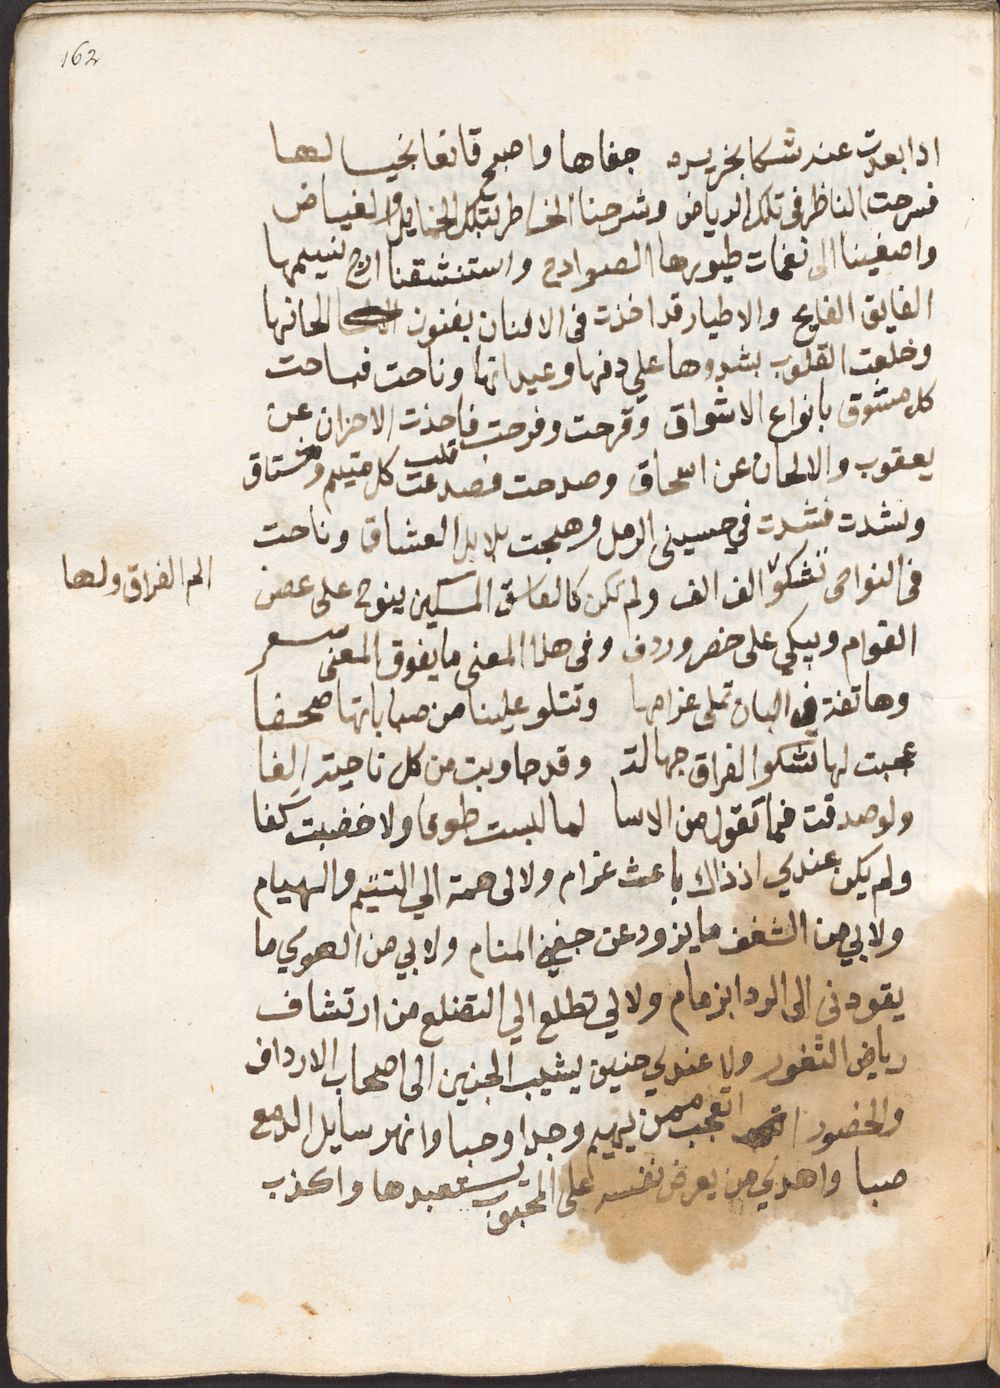 162
اذا بعدت عند شكا بخريره جفاها واصبح قانعا بخيالها
فسرحت الناظر في تلك الرياض وشرحنا الخاطر بتلك الخمايل والغياض
واصغينا الى نغمات طيورها الصوادح واستنشقنا ارج نسيمها
الفايق الفايح والاطيار قد اخذت في الافنان بفنون الحانها
وخلعت القلوب بشدوها على دفها وعيدانها وناحت فباحت
كل مشوق بانواع الاشواق وقرحت وفرحت فاخذت الاحزان عن
يعقوب والالحان عن اسحاق وصدحت فصدعت قلب كل متيم ومشتاق
ونشدت فشدت في حسيني الرمل وهيجت بلابل العشاق وناحت
في النواحى تشكوا الف الف ولم تكن كالعاشق المسكين ينوح على غصن
الم الفراق ولها
القوام ويبكي على خصر وردف وفي هذا المعنى ما يفوق المغنى شعر
وهاتفة في البان تملى غرامها وتتلو علينا من صباباتها صحفا
عجبت لها تشكوا الفراق جهالة وقد جاوبت من كل ناحية الفا
ولو صدقت فيما تقول من الاسا لما لبست طوقا ولا خضبت كفا
ولم يكن عندي اذ ذاك باعث غرام ولا لى همة الي التتيم والهيام
ولا بي من الشغف ما يذود عن جفني المنام ولا بي من الهوي ما
يقودني الى الردا بزمام ولا لي تطلع الي التضلع من ارتشاف
رياض الثغور ولا عندي حنين يشيب الجنين الى اصحاب الارداف
والخصور اتعجب ممن يهيم وجدا وحبا وانهر سايل الدمع
صبا واهدي من يعرض نفسه على المحبوب يستعبدها واكذب